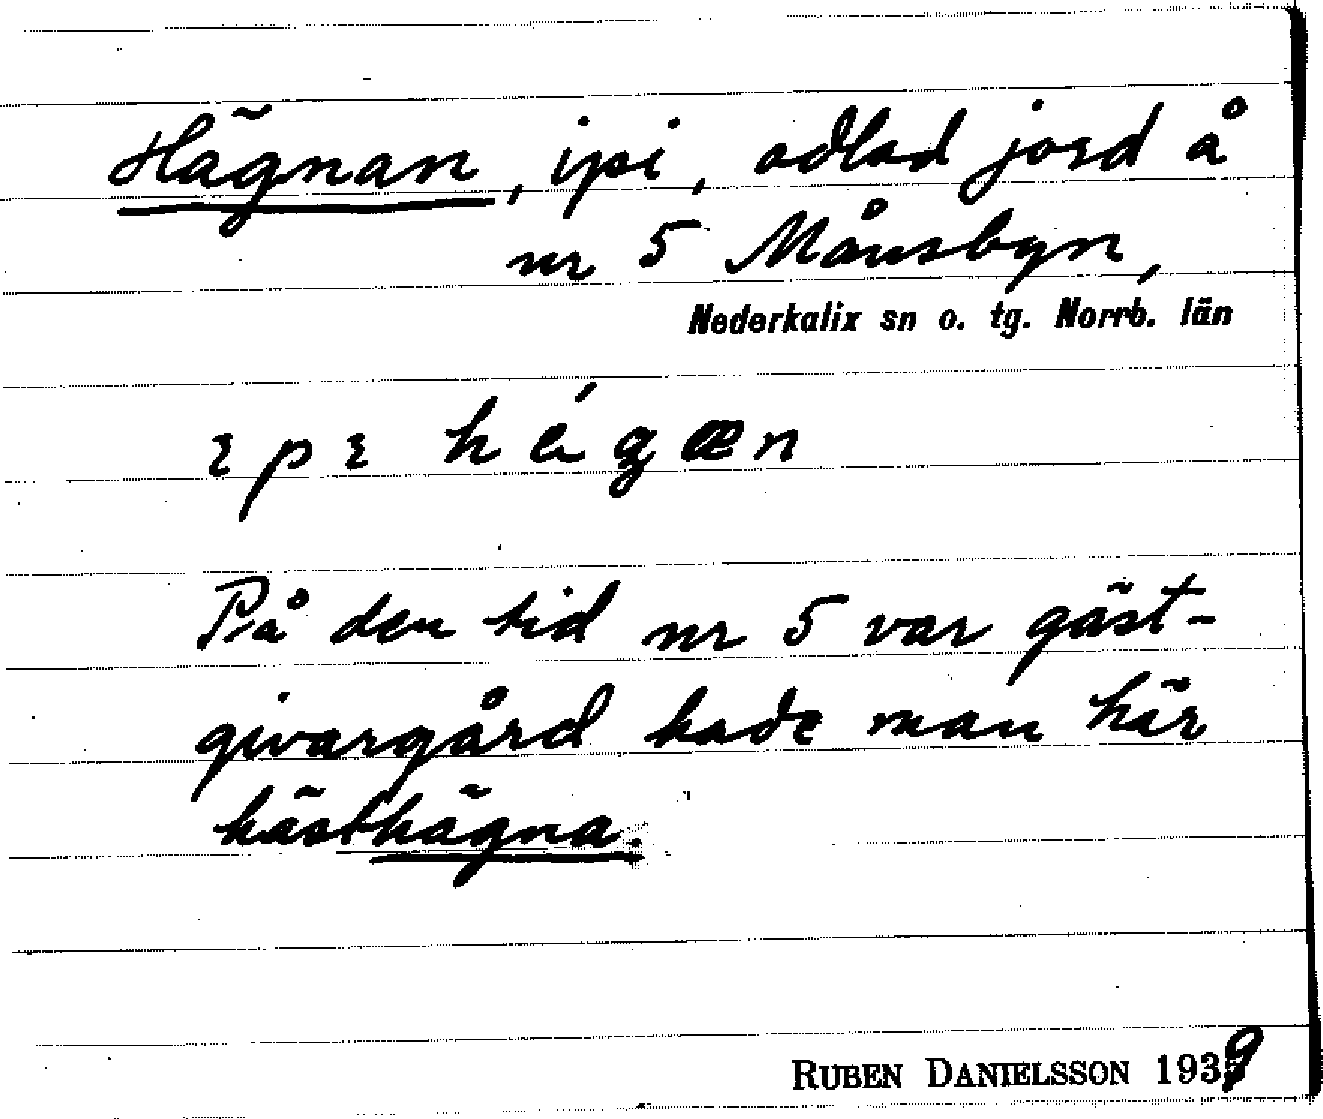 Hägnan, ipi, odlad jord å
nr 5 Månsbyn,
Nederkalix sn o. tg. Norrb. län
ɩpɩ hégæn
På den tid nr 5 var gäst-
givargård hade man här
hästhägna.
RUBEN DANIELSSON 1939